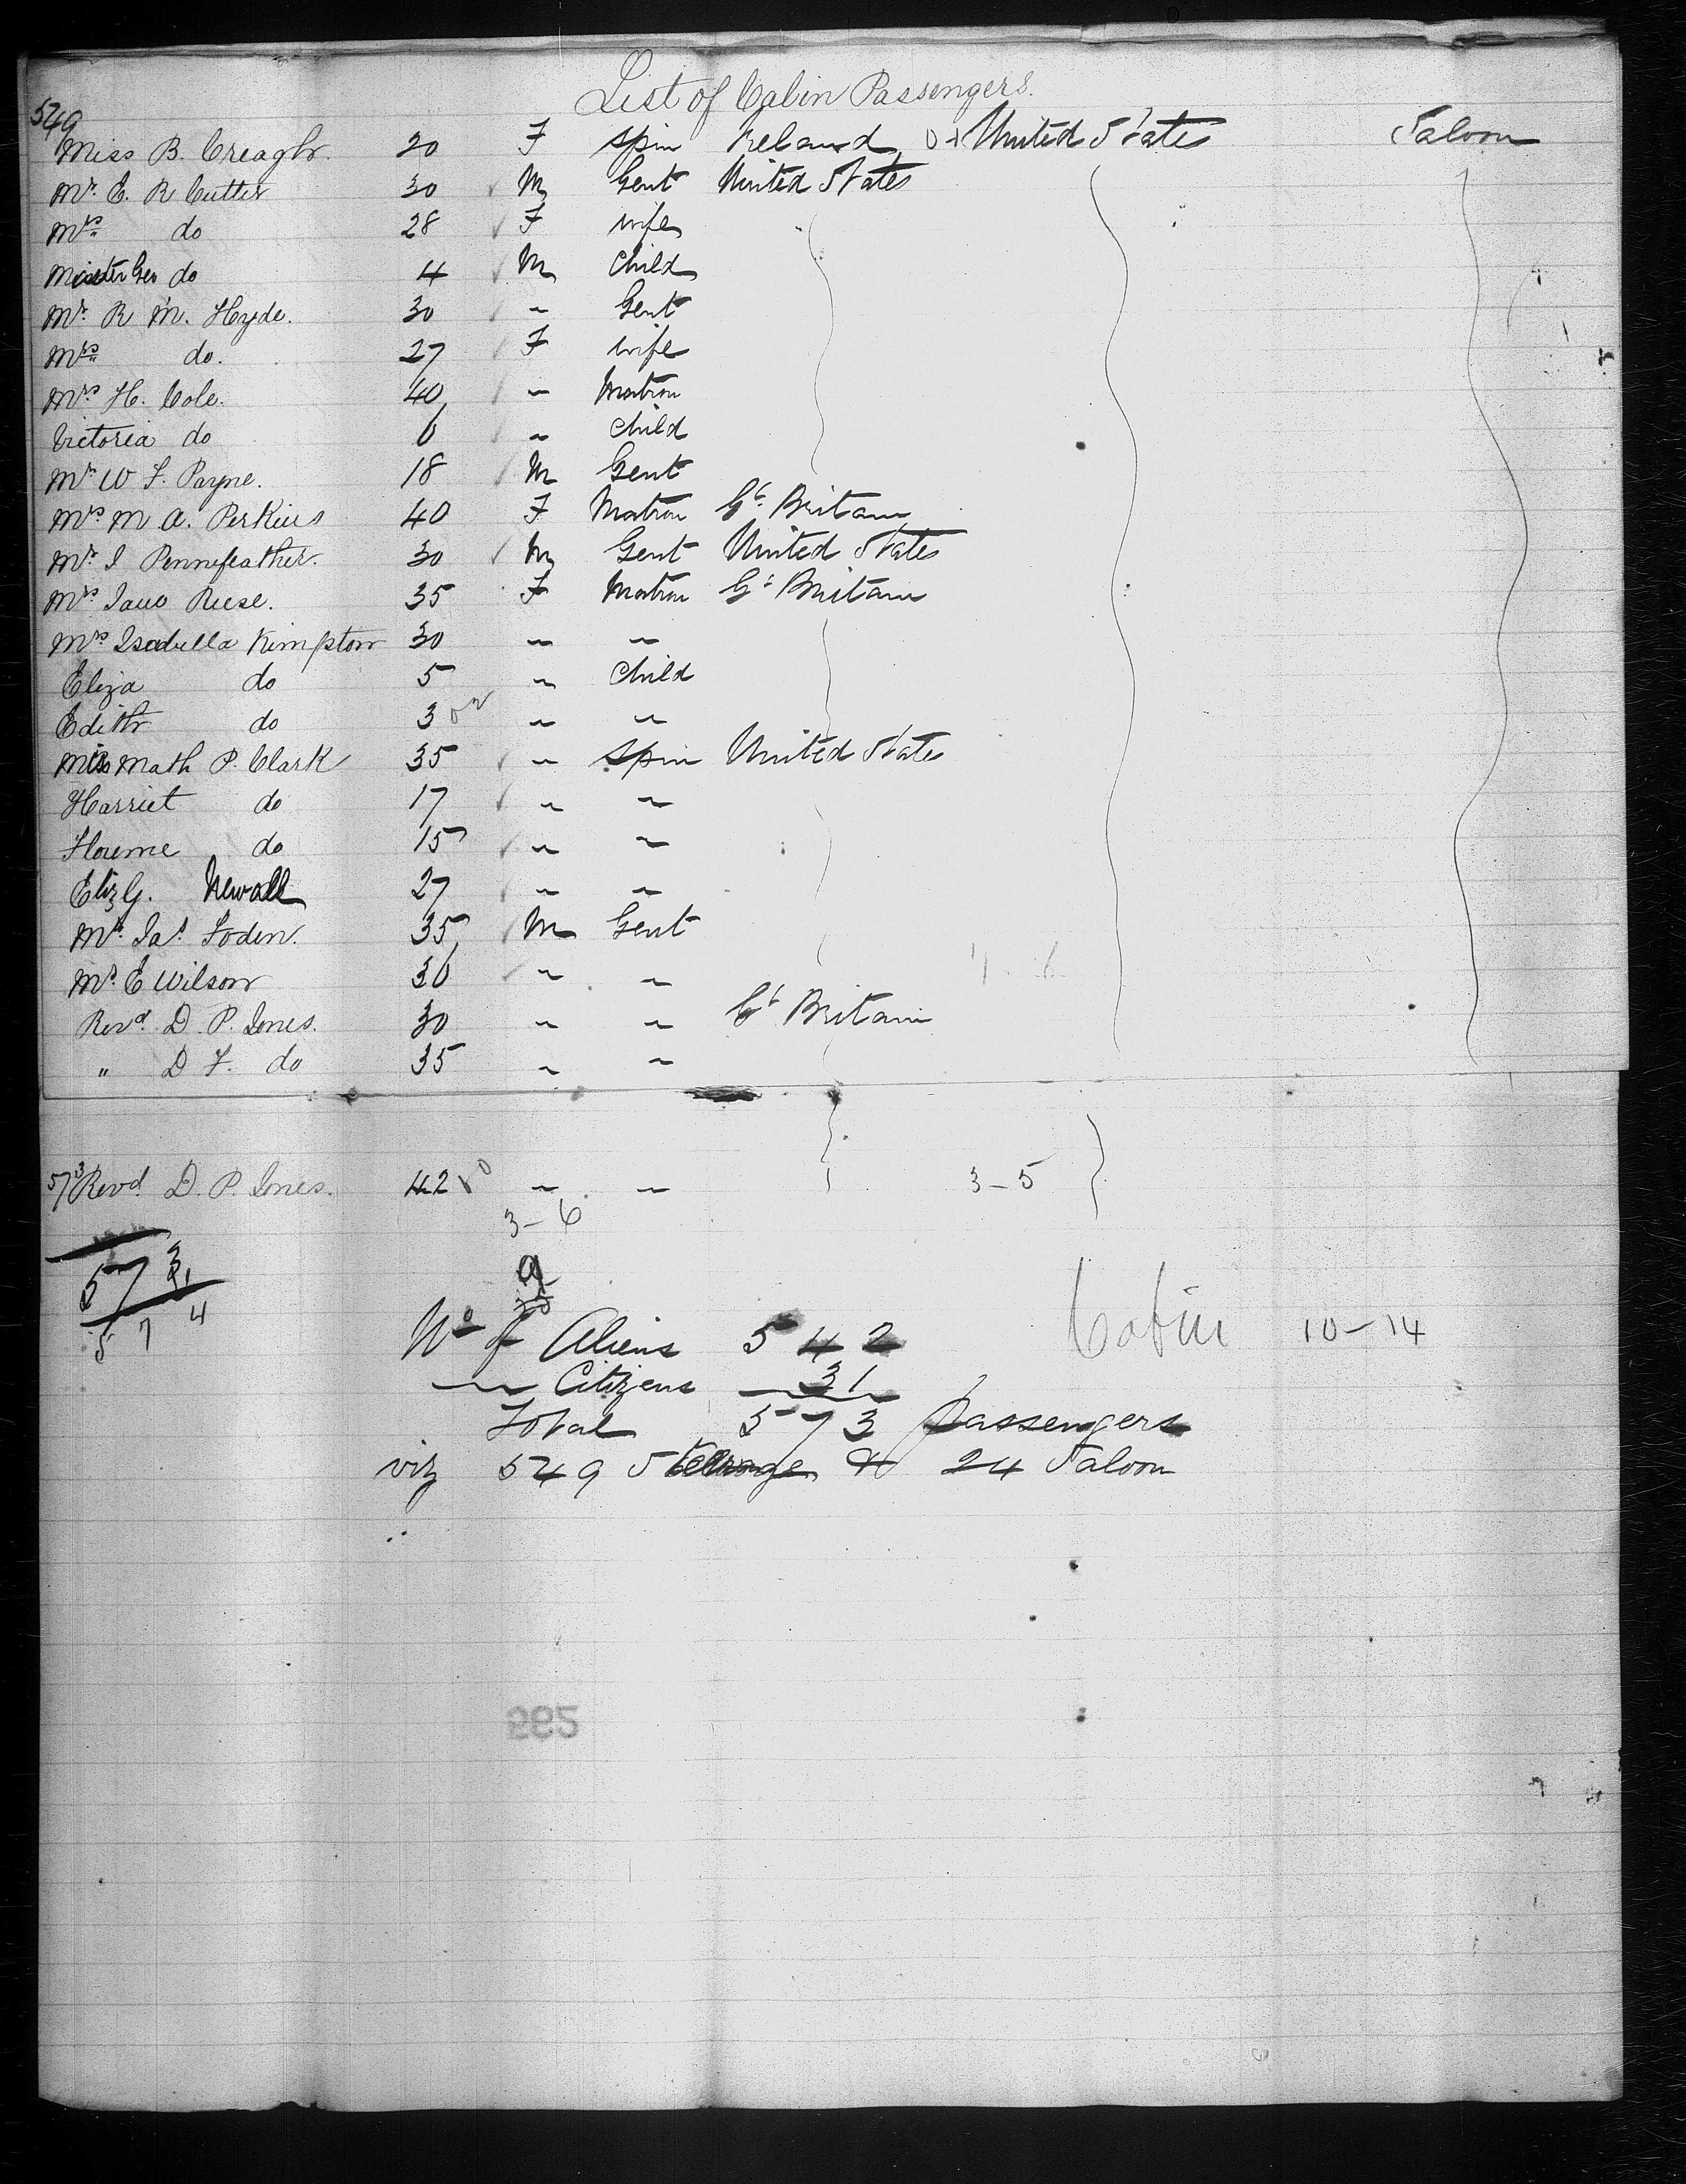 List of Cabin Passengers.
549
Miss B. Creagh. 20 F Spin Ireland United States Saloon
Mr. E. R Cutter 30 M Gent United States
Mrs do 28 F wife
Master Geo do 4 M Child
Mr. R M. Hyde. 30 " Gent
Mrs do. 27 F wife
Mrs H. Cole. 40 " Matron
Victoria do 6 " Child
Mr W F. Payne. 18 M Gent
Mrs M A. Perkins 40 F Matron Gt. Britain
Mr. I Pennefeather. 30 M Gent United States
Mrs Jane Reese. 35 F Matron Gt. Britain
Mrs Isabella Kimpton 30 " "
Eliza do 5 " Child
Edith do 3 " "
Miss Math P. Clark 35 " Spin United States
Harriet do 17 " "
do 15 " "
Eliz G. Newall 27 " "
Mr. Jas. Foden. 35 M Gent
Mr. E Wilson 30 " "
Revd. D. P. Jones. 30 " " Gt Britain
" D F. do 35 " "
573 Revd. D. P. Jones. 42 " " 3-5
3-6
573
574
No of Aliens 542 Cabin 10-14
" Citizens 31
Total 573 passengers
viz 549 Steerage & 24 Saloon
282